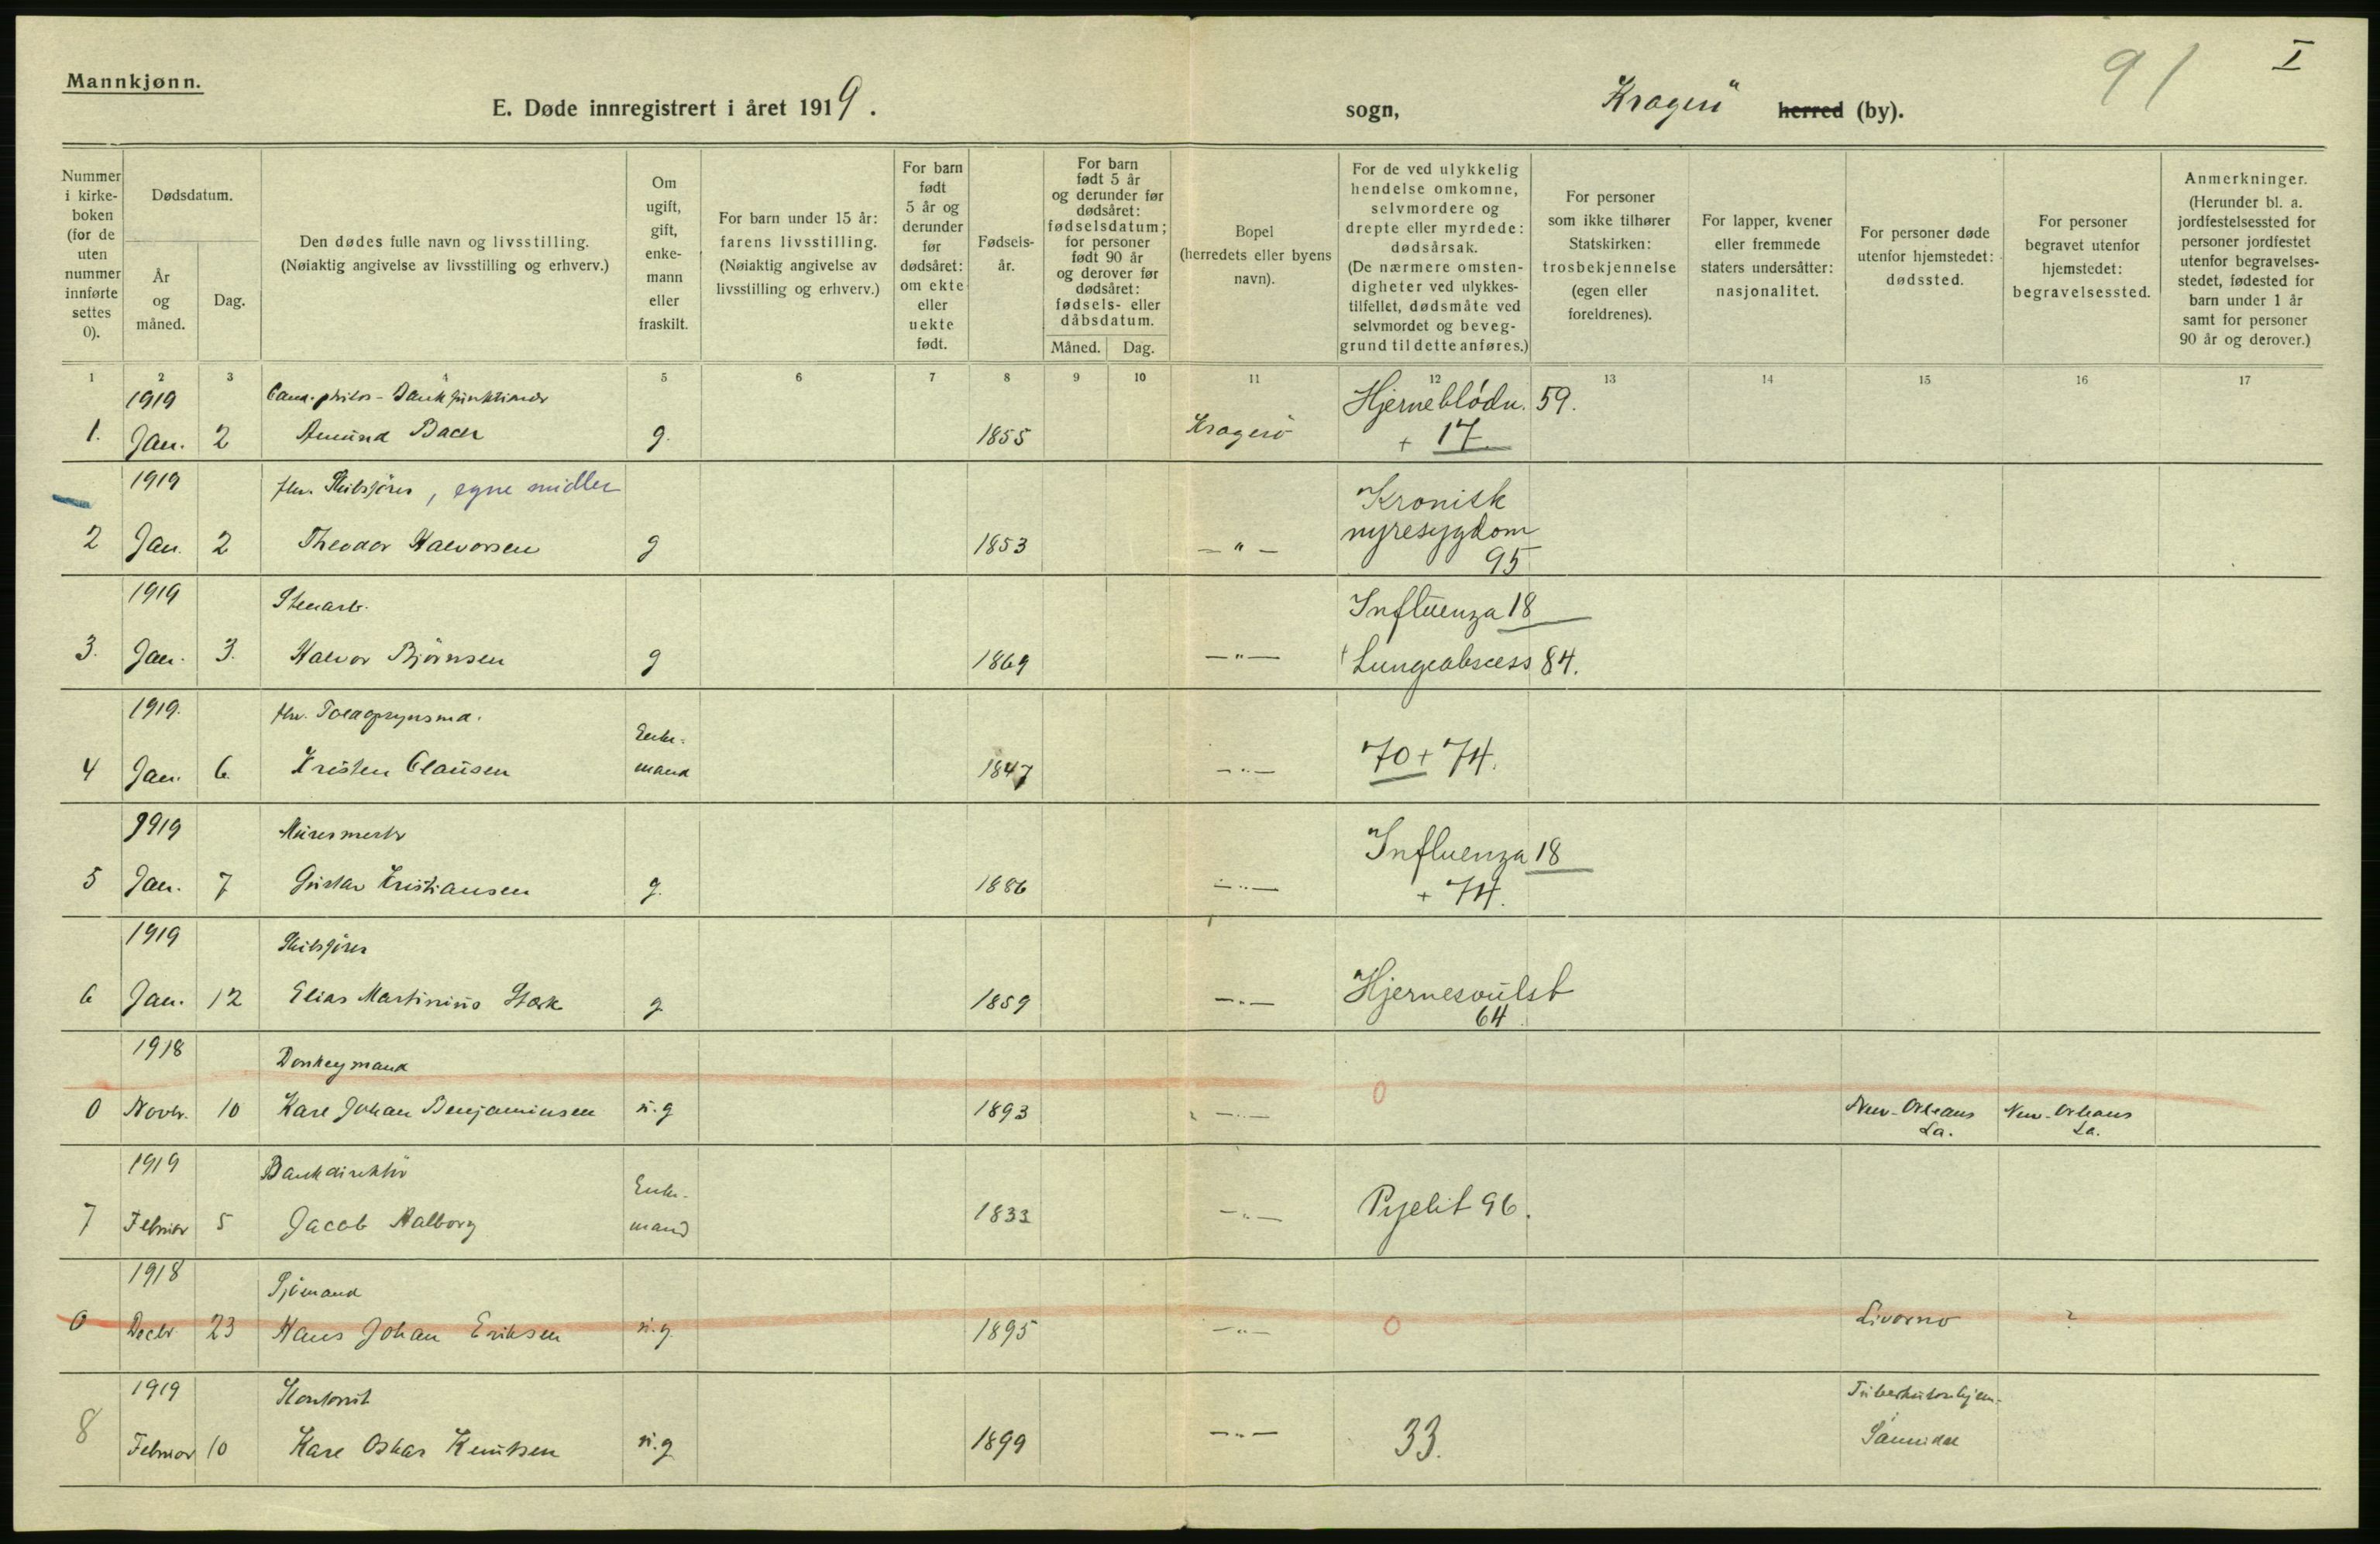 Mannkjønn.
E. Døde innregistrert i året 1919.
sogn,
Kragerö
herred (by).
91
I
Nummer i kirke-boken (for de uten nummer innførte settes 0).
Dødsdatum.
År og måned.
Dag.
Den dødes fulle navn og livsstilling.
(Nøiaktig angivelse av livsstilling og erhverv.)
Om ugift, gift, enke-mann eller fraskilt.
For barn under 15 år: farens livsstilling. (Nøiaktig angivelse av livsstilling og erhverv.)
For barn født 5 år og derunder før dødsåret: om ekte eller uekte født.
Fødsels-år.
For barn født 5 år og derunder før dødsåret: fødselsdatum; for personer født 90 år og derover før dødsåret: fødsels- eller dåbsdatum.
Måned. Dag.
Bopel (herredets eller byens navn).
For de ved ulykkelig hendelse omkomne, selvmordere og drepte eller myrdede: dødsårsak. (De nærmere omsten-digheter ved ulykkes-tilfellet, dødsmåte ved selvmordet og beveg-grund til dette anføres.)
For personer som ikke tilhører Statskirken: trosbekjennelse (egen eller foreldrenes).
For lapper, kvener eller fremmede staters undersåtter: nasjonalitet.
For personer døde utenfor hjemstedet: dødssted.
For personer begravet utenfor hjemstedet: begravelsessted.
Anmerkninger. (Herunder bl. a. jordfestelsessted for personer jordfestet utenfor begravelses-stedet, fødested for barn under 1 år samt for personer 90 år og derover.)
1 2 3 4 5 6 7 8 9 10 11 12 13 14 15 16 17
1919 Cand. philos - Bankfunktionær Hjerneblödn. 59.
1. Jan. 2 Amund Baer g. 1855 Kragerö + 17
1919 fhv. Skibsfører, egne midler Kronisk nyresygdom
2 Jan. 2 Theodor Halvorsen g 1853 — " — 95
1919 Stenarb. Influenza 18
3. Jan. 3. Halvor Björnsen g 1869 — " — + Lungeabscess 84.
1919. fhv. Toldopsynsmd. Enke-
4 Jan. 6 Kristen Clausen mand 1847 — " — 70 + 74.
1919 Murermestr Influenza 18
5 Jan. 7 Gustav Kristiansen g. 1886 — " — + 74.
1919 Skibsfører
6 Jan. 12 Elias Martinius Stærk g 1859 — " — Hjernesvulst 64
1918 Donkeymand 0
0 Novbr. 10 Karl Johan Benjaminsen u.g 1893 — " — New-Orleans La. New-Orleans La.
1919 Bankdirektör Enke-
7 Februar 5 Jacob Aalborg mand 1833 — " — Pyelit 96.
1918 Sjömand
0 Decbr 23 Hans Johan Eriksen u.g. 1895 — " — 0 Livorno ?
1919 Kontorist Tuberkulosehjem-
8 Februar 10 Karl Oskar Knutsen u.g 1899 — " — 33. Sannidal